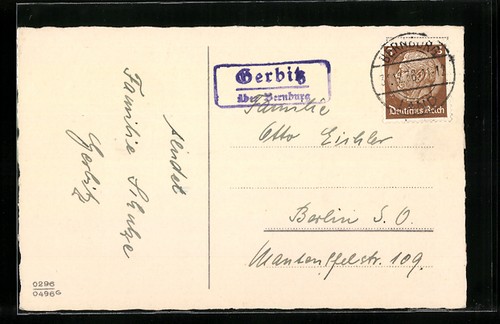 sendet
Familie Schulze
Gerbitz
0296
0496G
Gerbitz
über Bernburg
BERNBURG
3
Deutsches Reich
Familie
Otto Eichler
Berlin S.O.
Manteuffelstr. 109.